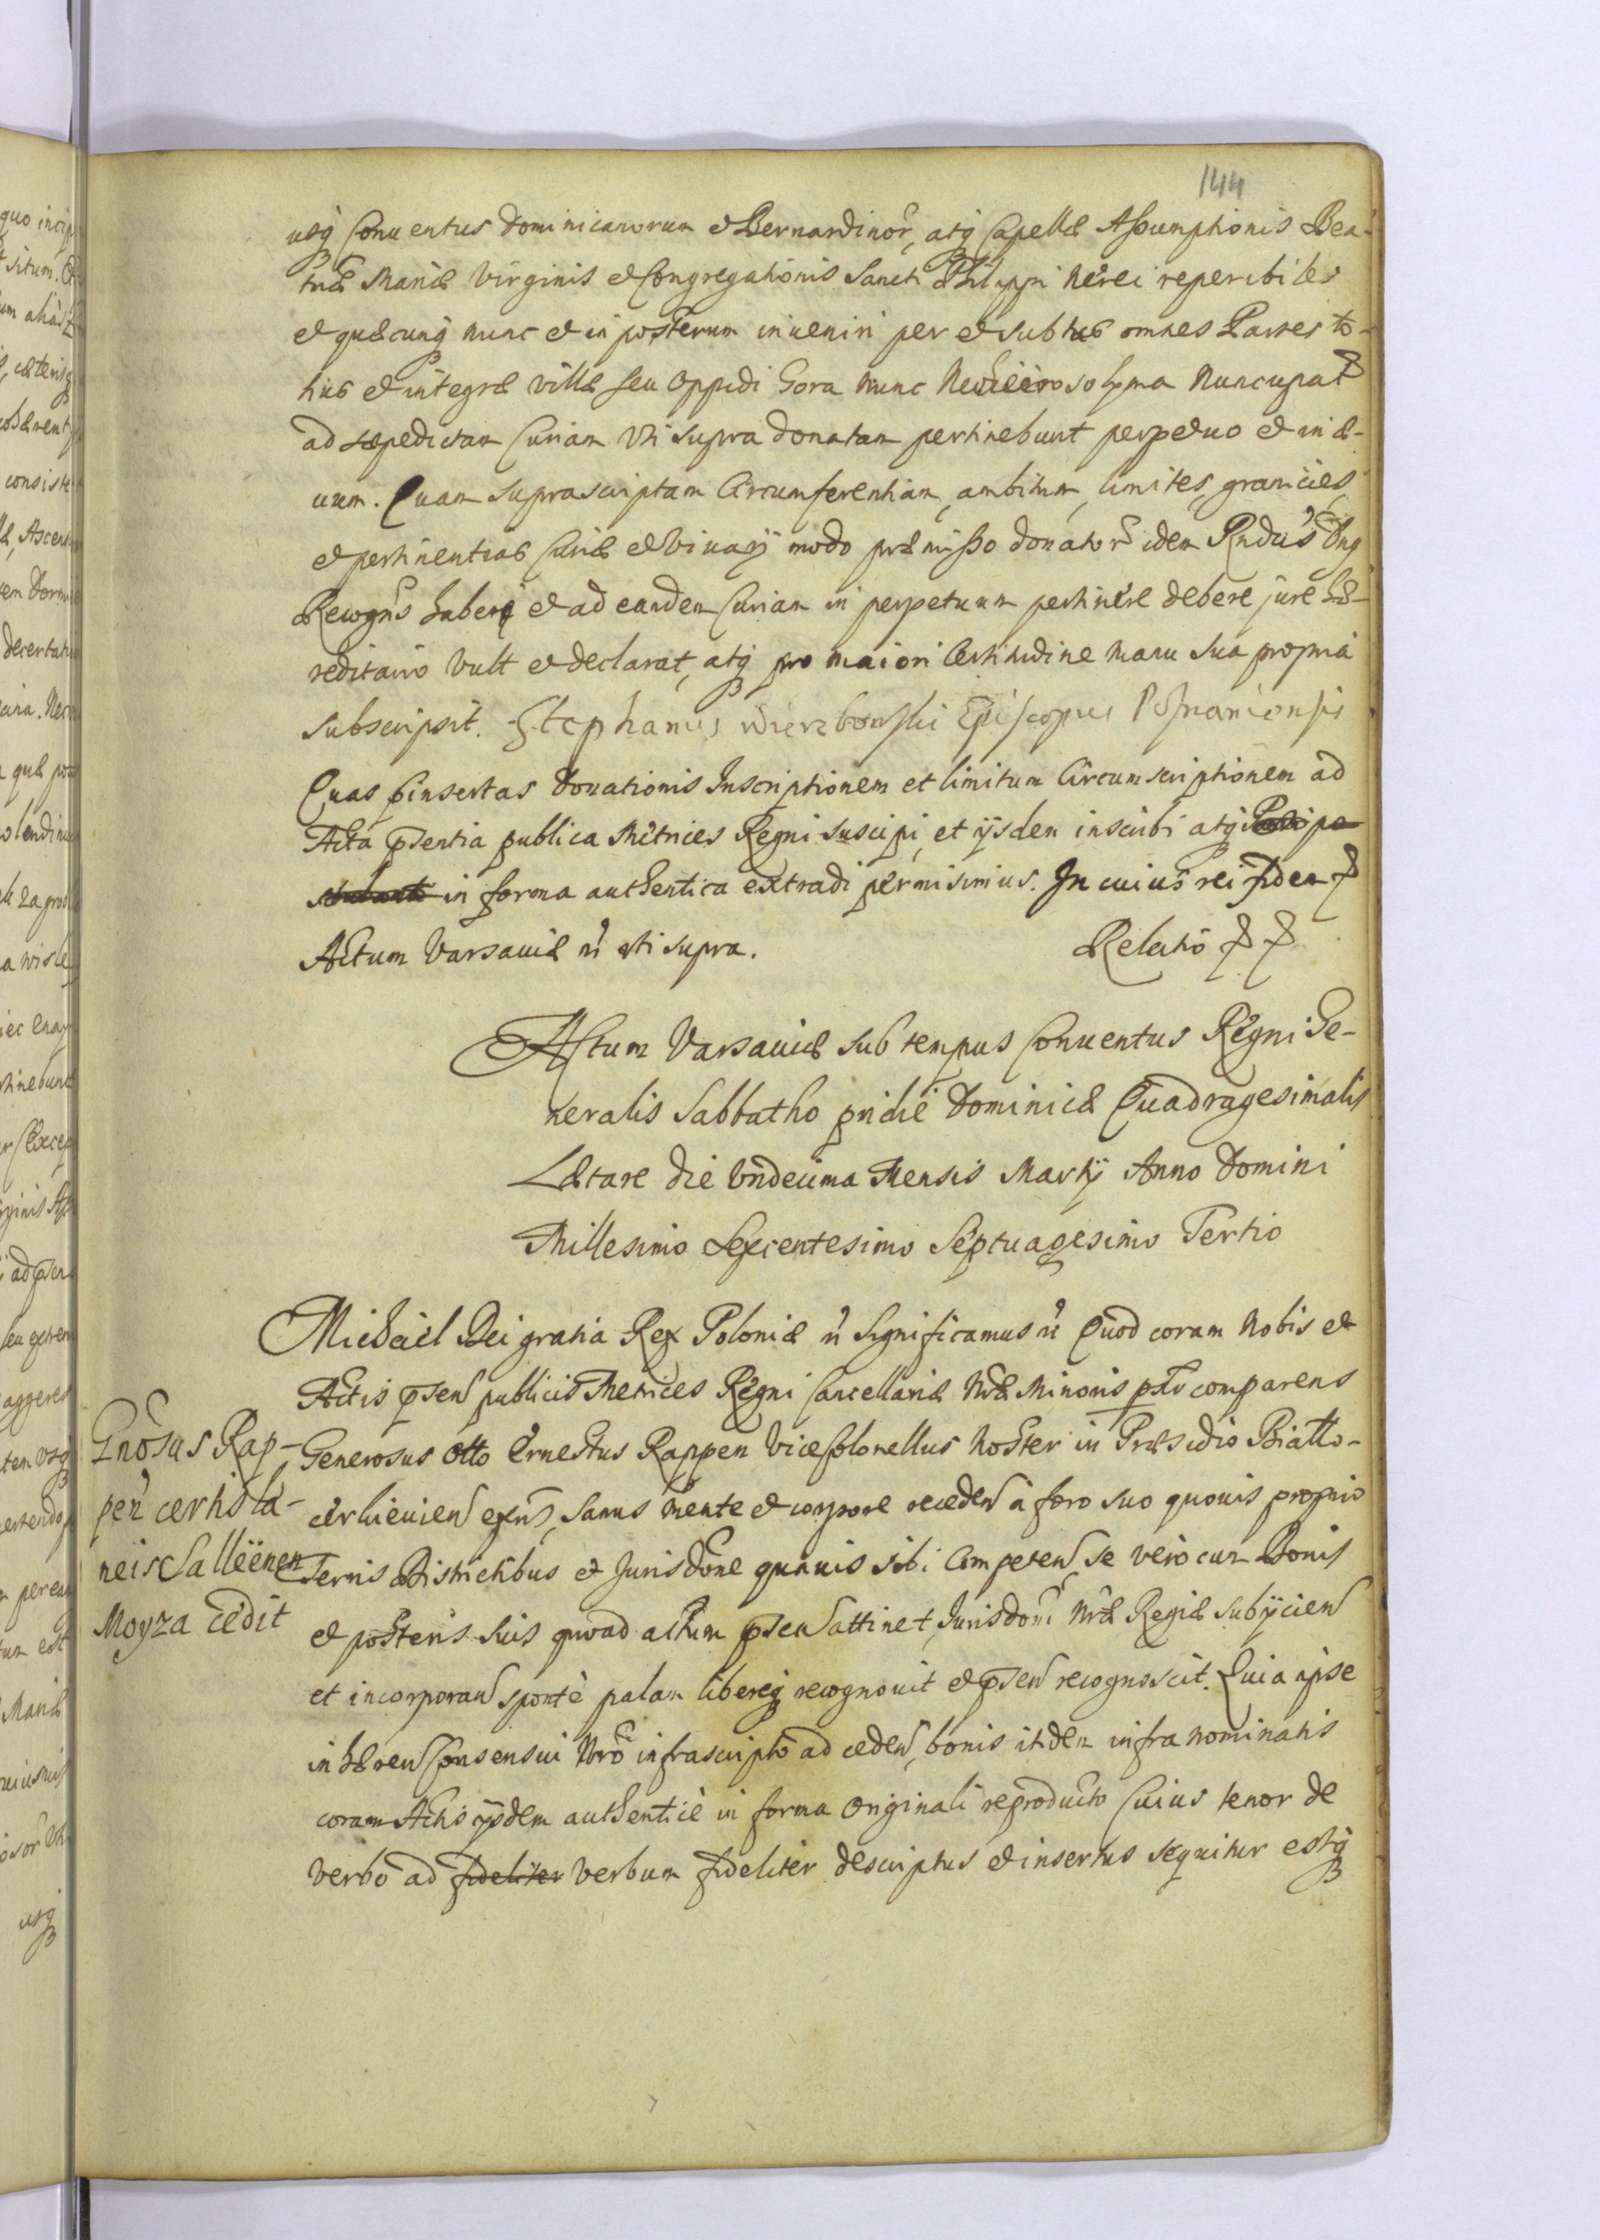 144
usq Conventus Dominicanorum et Bernardinor, atq Capellæ Assumptionis Bea-
tæ Mariæ Virginis et Congregationis Sancti Philippi Nerei reperibiles
et quæcunq nunc et in posterum inveniri per et subtus omnes Partes to-
tius et integræ villæ seu Oppidi Gora nunc Neo
ad sæpedictam Curiam Vti supra donatam pertinebunt perpetuo et in æ-
uum. Quam suprascriptam Circumferentiam, ambitum, limites, granicies,
et pertinentias Curiæ et Vivarij modo præmisso donator idem Rndus Dnq
Recogns haberi et ad eandem Curiam in perpetuum pertinere debere jure hæ-
reditario vult et declarat, atq pro maiori Certitudine manu sua propria
subscripsit. Stephanus Wierzbowski Episcopus Posnaniensis
Quas pinsertas Donationis Inscriptionem et limitum Circumscriptionem ad
Acta psentia publica Metrices Regni suscipi, et ijsdem inscribi atq
in forma authentica extradi permisimus. In cuius rei fidem
Actum Varsaviæ vti supra. Relatio
Actum Varsaviæ sub tempus Conventus Regni Ge-
neralis Sabbatho pridie Dominicæ Quadragesimalis
Lætare die Vndecima Mensis Martij Anno Domini
Millesimo Sexcentesimo Septuagesimo Tertio
Michael Dei gratia Rex Poloniæ Significamus Quod coram Nobis et
Actis psen publicis Metrices Regni Cancellariæ Nræ Minoris comparens
Gnosus Rap-
pen certis la-
neis Salleënen
Moyza cedit
Generosus Otto Ernestus Rappen ViceColonellus Noster in Præsidio Biatto-
cerkievien exns, Sanus mente et corpore receden à foro suo quovis proprio
Terris Districtibus et Jurisdone quavis sibi Competen se vero cum Bonis
et posteris suis quoad actum psen attinet, Jurisdoni Nræ Regiæ subijcien
et incorporan sponte palam libereq recognovit et psen recognoscit. Quia ipse
in hæren Consensui Nro infrascripto ad ceden, bonis itidem infra nominatis
coram Actis ijsdem authentice in forma Originali reproducto Cuius tenor de
verbo ad fideliter verbum fideliter descriptus et insertus sequitur estq